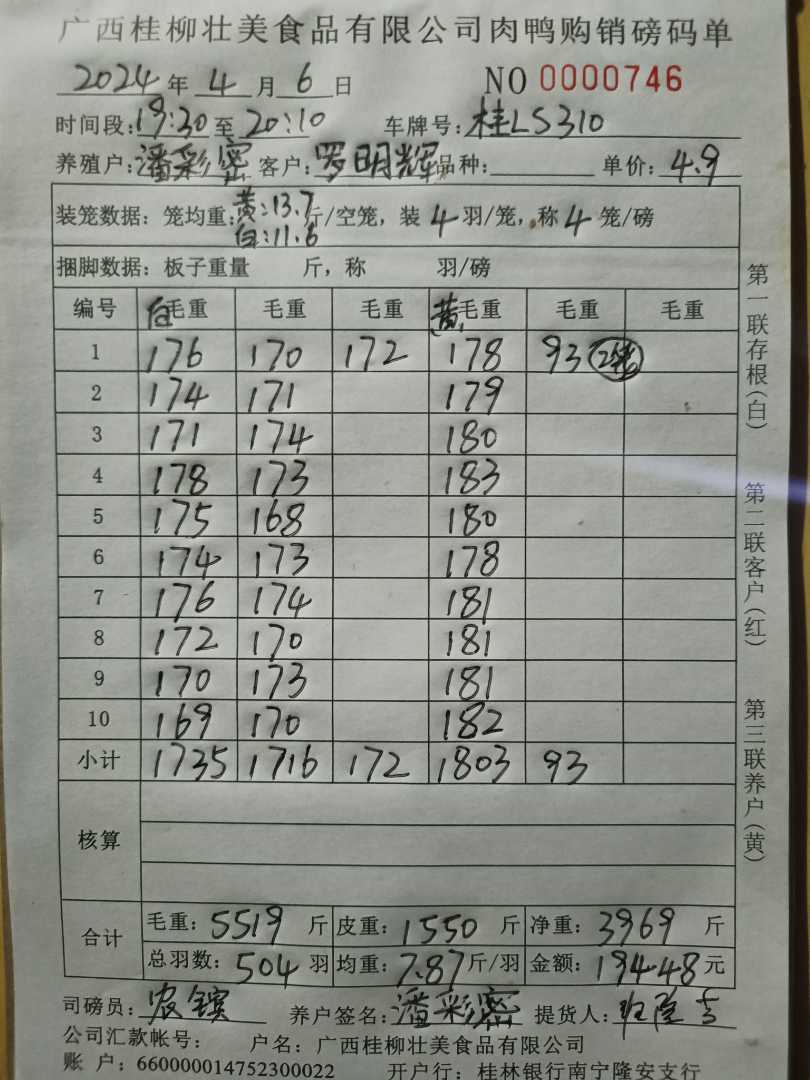 广西桂柳壮美食品有限公司肉鸭购销磅码单
2024年4月6日 NO 0000746
时间段:19:30至20:10 车牌号:桂LS310
养殖户:潘彩密 客户:罗明辉 品种: 单价:4.9
装笼数据: 笼均重:黄:13.7 白:11.6 斤/空笼, 装4羽/笼, 称4笼/磅
捆脚数据: 板子重量 斤, 称 羽/磅
编号 白毛重 毛重 毛重 黄毛重 毛重 毛重
1 176 170 172 178 93 2笼
2 174 171 179
3 171 174 180
4 178 173 183
5 175 168 180
6 174 173 178
7 176 174 181
8 172 170 181
9 170 173 181
10 169 170 182
小计 1735 1716 172 1803 93
核算
合计 毛重:5519斤 皮重:1550斤 净重:3969斤
总羽数:504羽 均重:7.87斤/羽 金额:19448元
司磅员:农镔 养户签名:潘彩密 提货人:
公司汇款帐号: 户名:广西桂柳壮美食品有限公司
账 户:660000014752300022 开户行:桂林银行南宁隆安支行
第一联存根(白) 第二联客户(红) 第三联养户(黄)